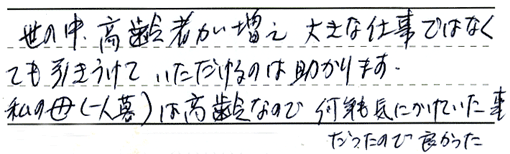 世の中、高齢者が増え 大きな仕事ではなく
ても引きうけて いただけるのは助かります。
私の母(一人暮)は高齢なので 何年も気にかけていた事
だったので 良かった